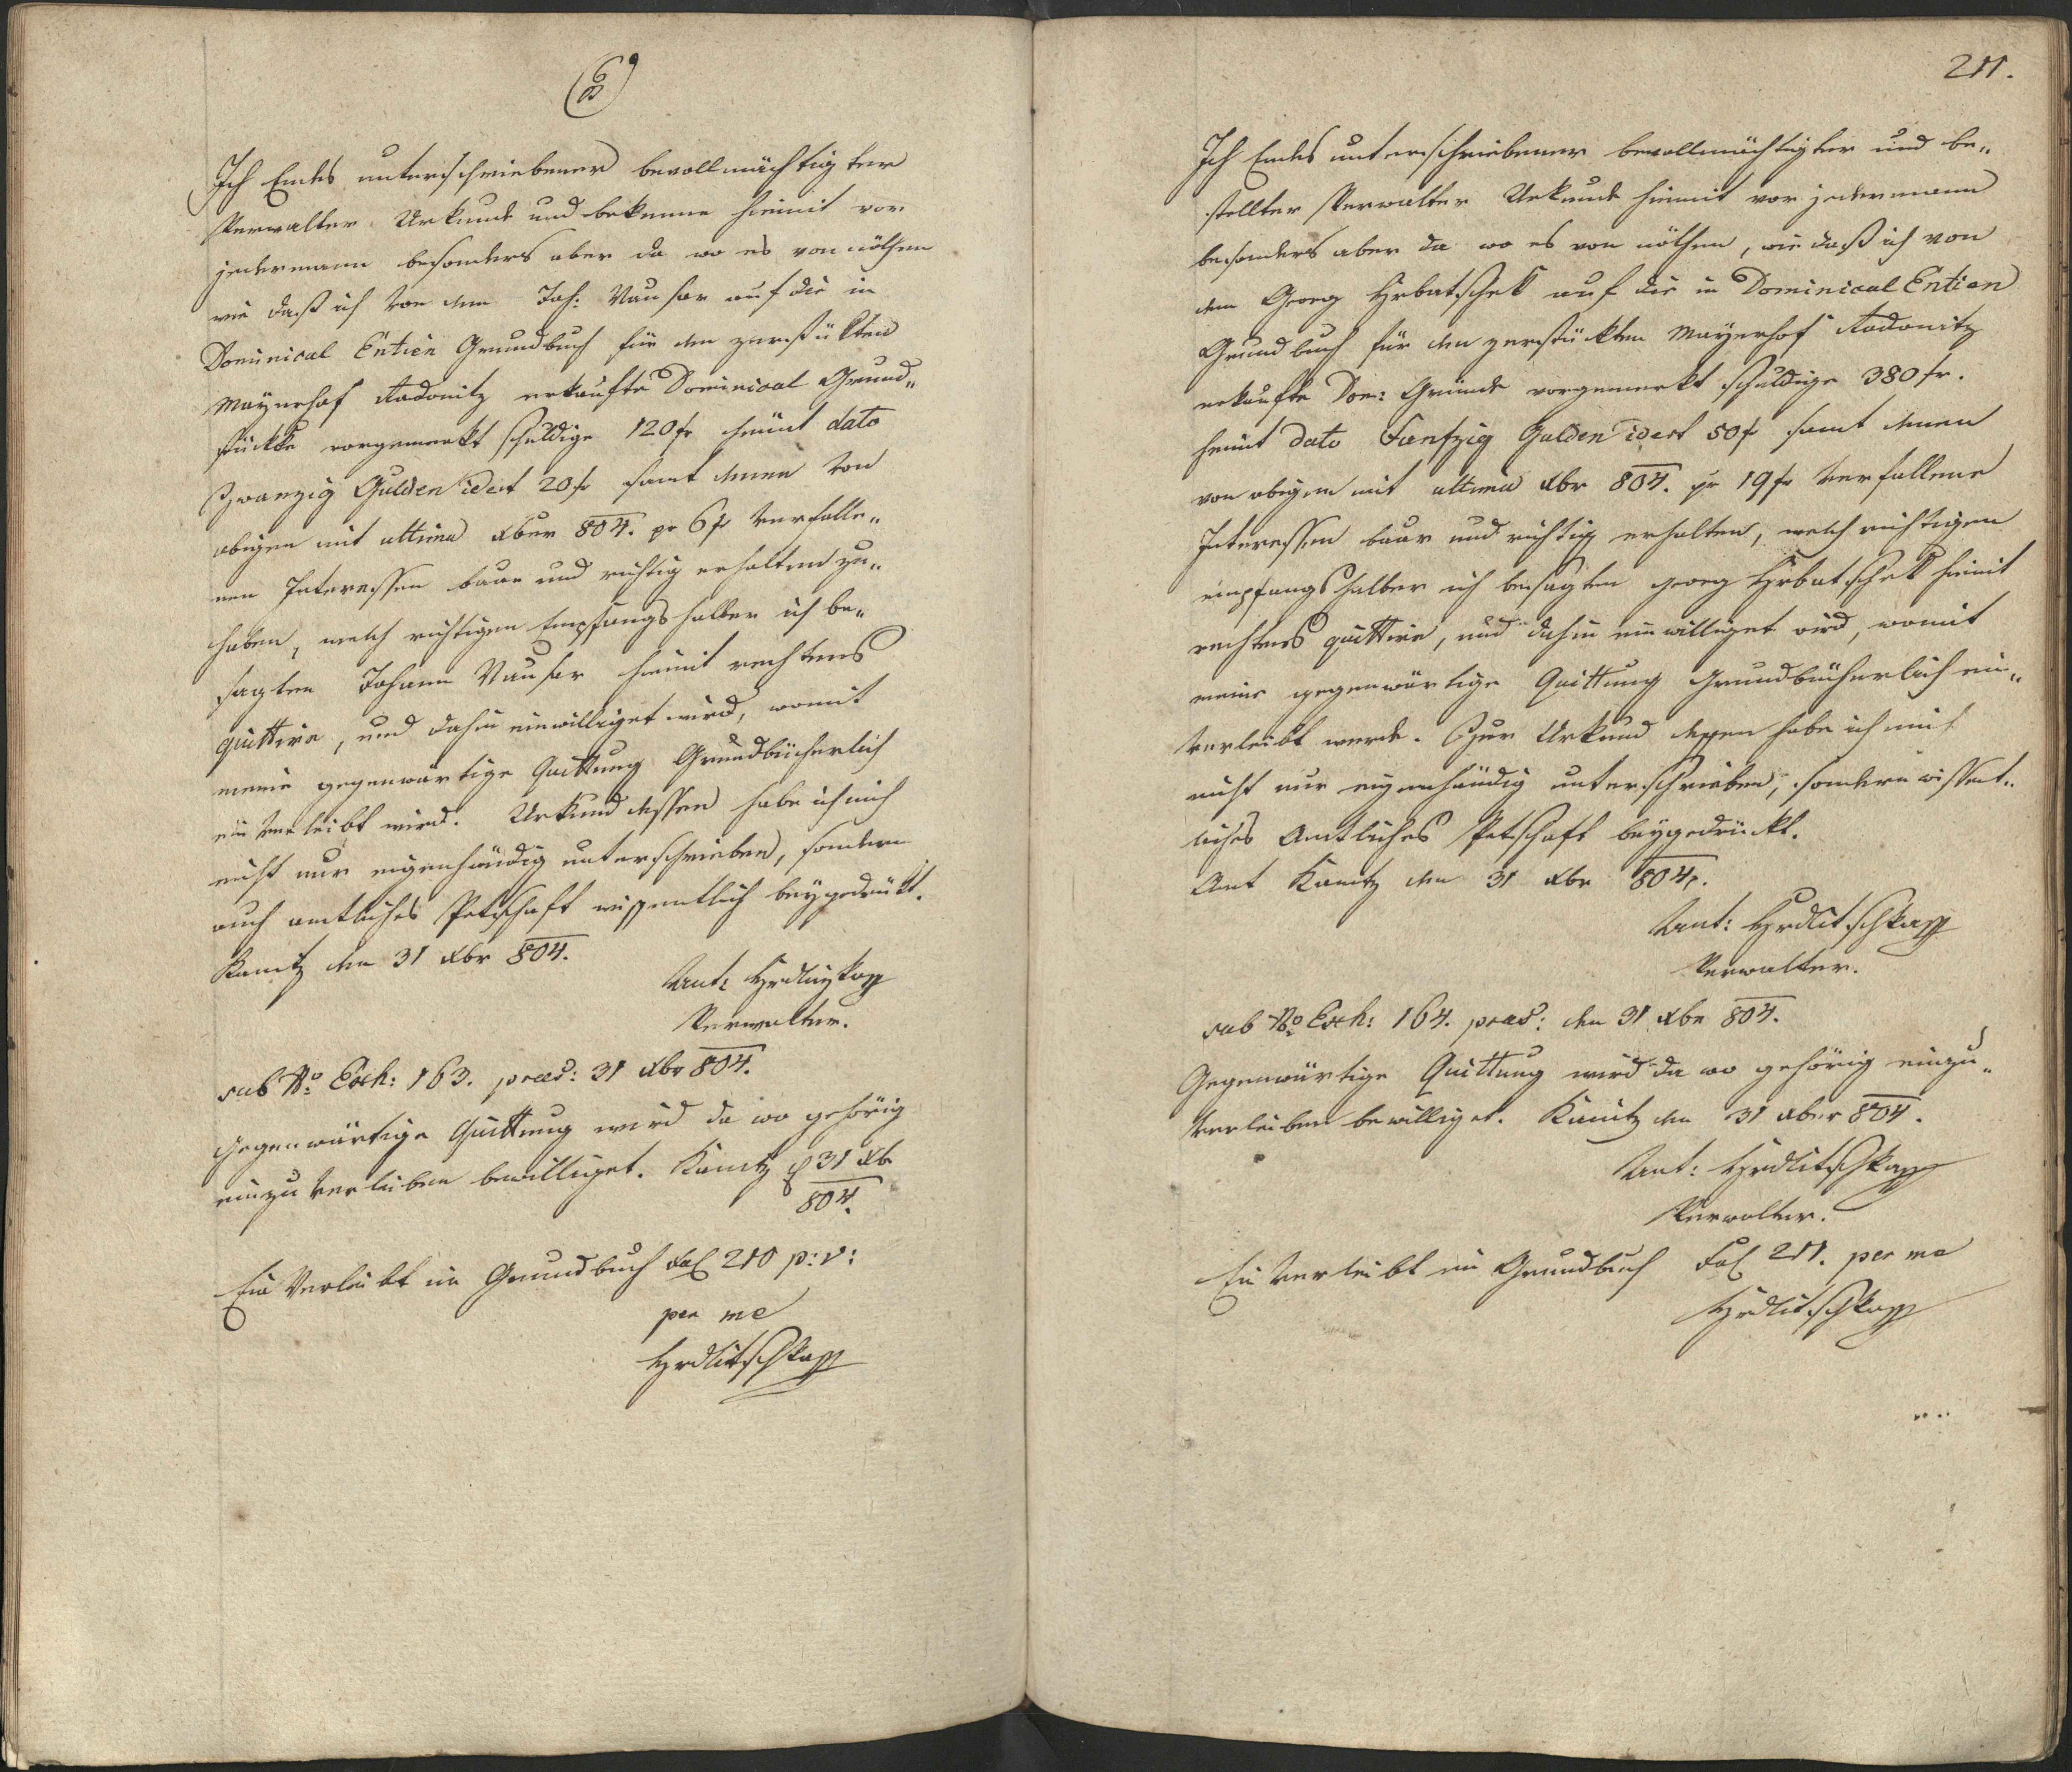 Ich Endes unterschriebener bevollmächtigter
Verwalter Urkunde und bekenne hiemit vor
jedermann besonders aber da wo es von nöthen
wie daß ich von dem Joh: Vauser auf die in
Dominical Entien Grundbuch für den zerstükten
Mayerhof Kadonitz erkaufte Dominical Grund„
stückke vorgemerkt schuldige 120 fr heünt dato
Zwanzig Gulden idest 20 fr samt denen von
obigen mit ultima Xber 804. pr 6 fr verfalle„
nen Interessen baar und richtig erhalten zu„
haben, welch richtigen Empfangs halber ich be„
sagten Johann Vauser hiemit rechtens
quittire, und dahin einwilliget wird, womit
meine gegenwärtige Quittung Grundbücherlich
ein verleibt wird. Urkund dessen habe ich mich
nicht nur eigenhändig unterschrieben, sondern
auch amtliches Petschaft wissentlich beygedrukt.
Kanitz den 31 Xbr 804.
Ant:
Verwalter.
sub No Exh: 163. praes: 31 Xbr 804.
Gegenwärtige Quittung wird da wo gehörig
einzuverleiben bewilliget. Kanitz d 31 Xb
804.
Ein Verleibt im Grundbuch Fol 210 p: v:
per me
Hrdlitschka
211.
Ich Endes unterschriebener bevollmächtigter und be„
stellter Verwalter Urkunde hiemit vor jedermann
besonders aber da wo es von nöthen, wie daß ich von
dem Georg Hrbatschek auf die in Dominical Entien
Grundbuch für den zerstückten Mayerhof Kadonitz
erkaufte Dom: Gründe vorgemerkt schuldige 380 fr.
heünt dato Funfzig Gulden idest 50 f samt denen
von obigen mit ultima Xbr 804. pr 19 fr verfallene
Interessen baar und richtig erhalten, welch richtigen
empfangs halber ich besagten Georg Hrbatschek hiemit
rechtens quittire, und dahin einwilliget wird, womit
meine gegenwärtige Quittung Grundbücherlich ein„
verleibt werde. Zur Urkund dessen habe ich mich
nicht nur eigenhändig unterschrieben, sondern wissent„
liches Amtliches Petschaft beygedrückt.
Amt Kanitz den 31 Xbr 804.
Ant: Hrdlitschka
Verwalter.
sub No Exh: 164. praes: den 31 Xbr 804.
Gegenwärtige Quittung wird da wo gehörig einzu„
verleiben bewilliget. Kanitz den 31 Xber 804.
Ant: Hrdlitschka
Verwalter.
Ein verleibt im Grundbuch Fol 211. per me
Hrdlitschka